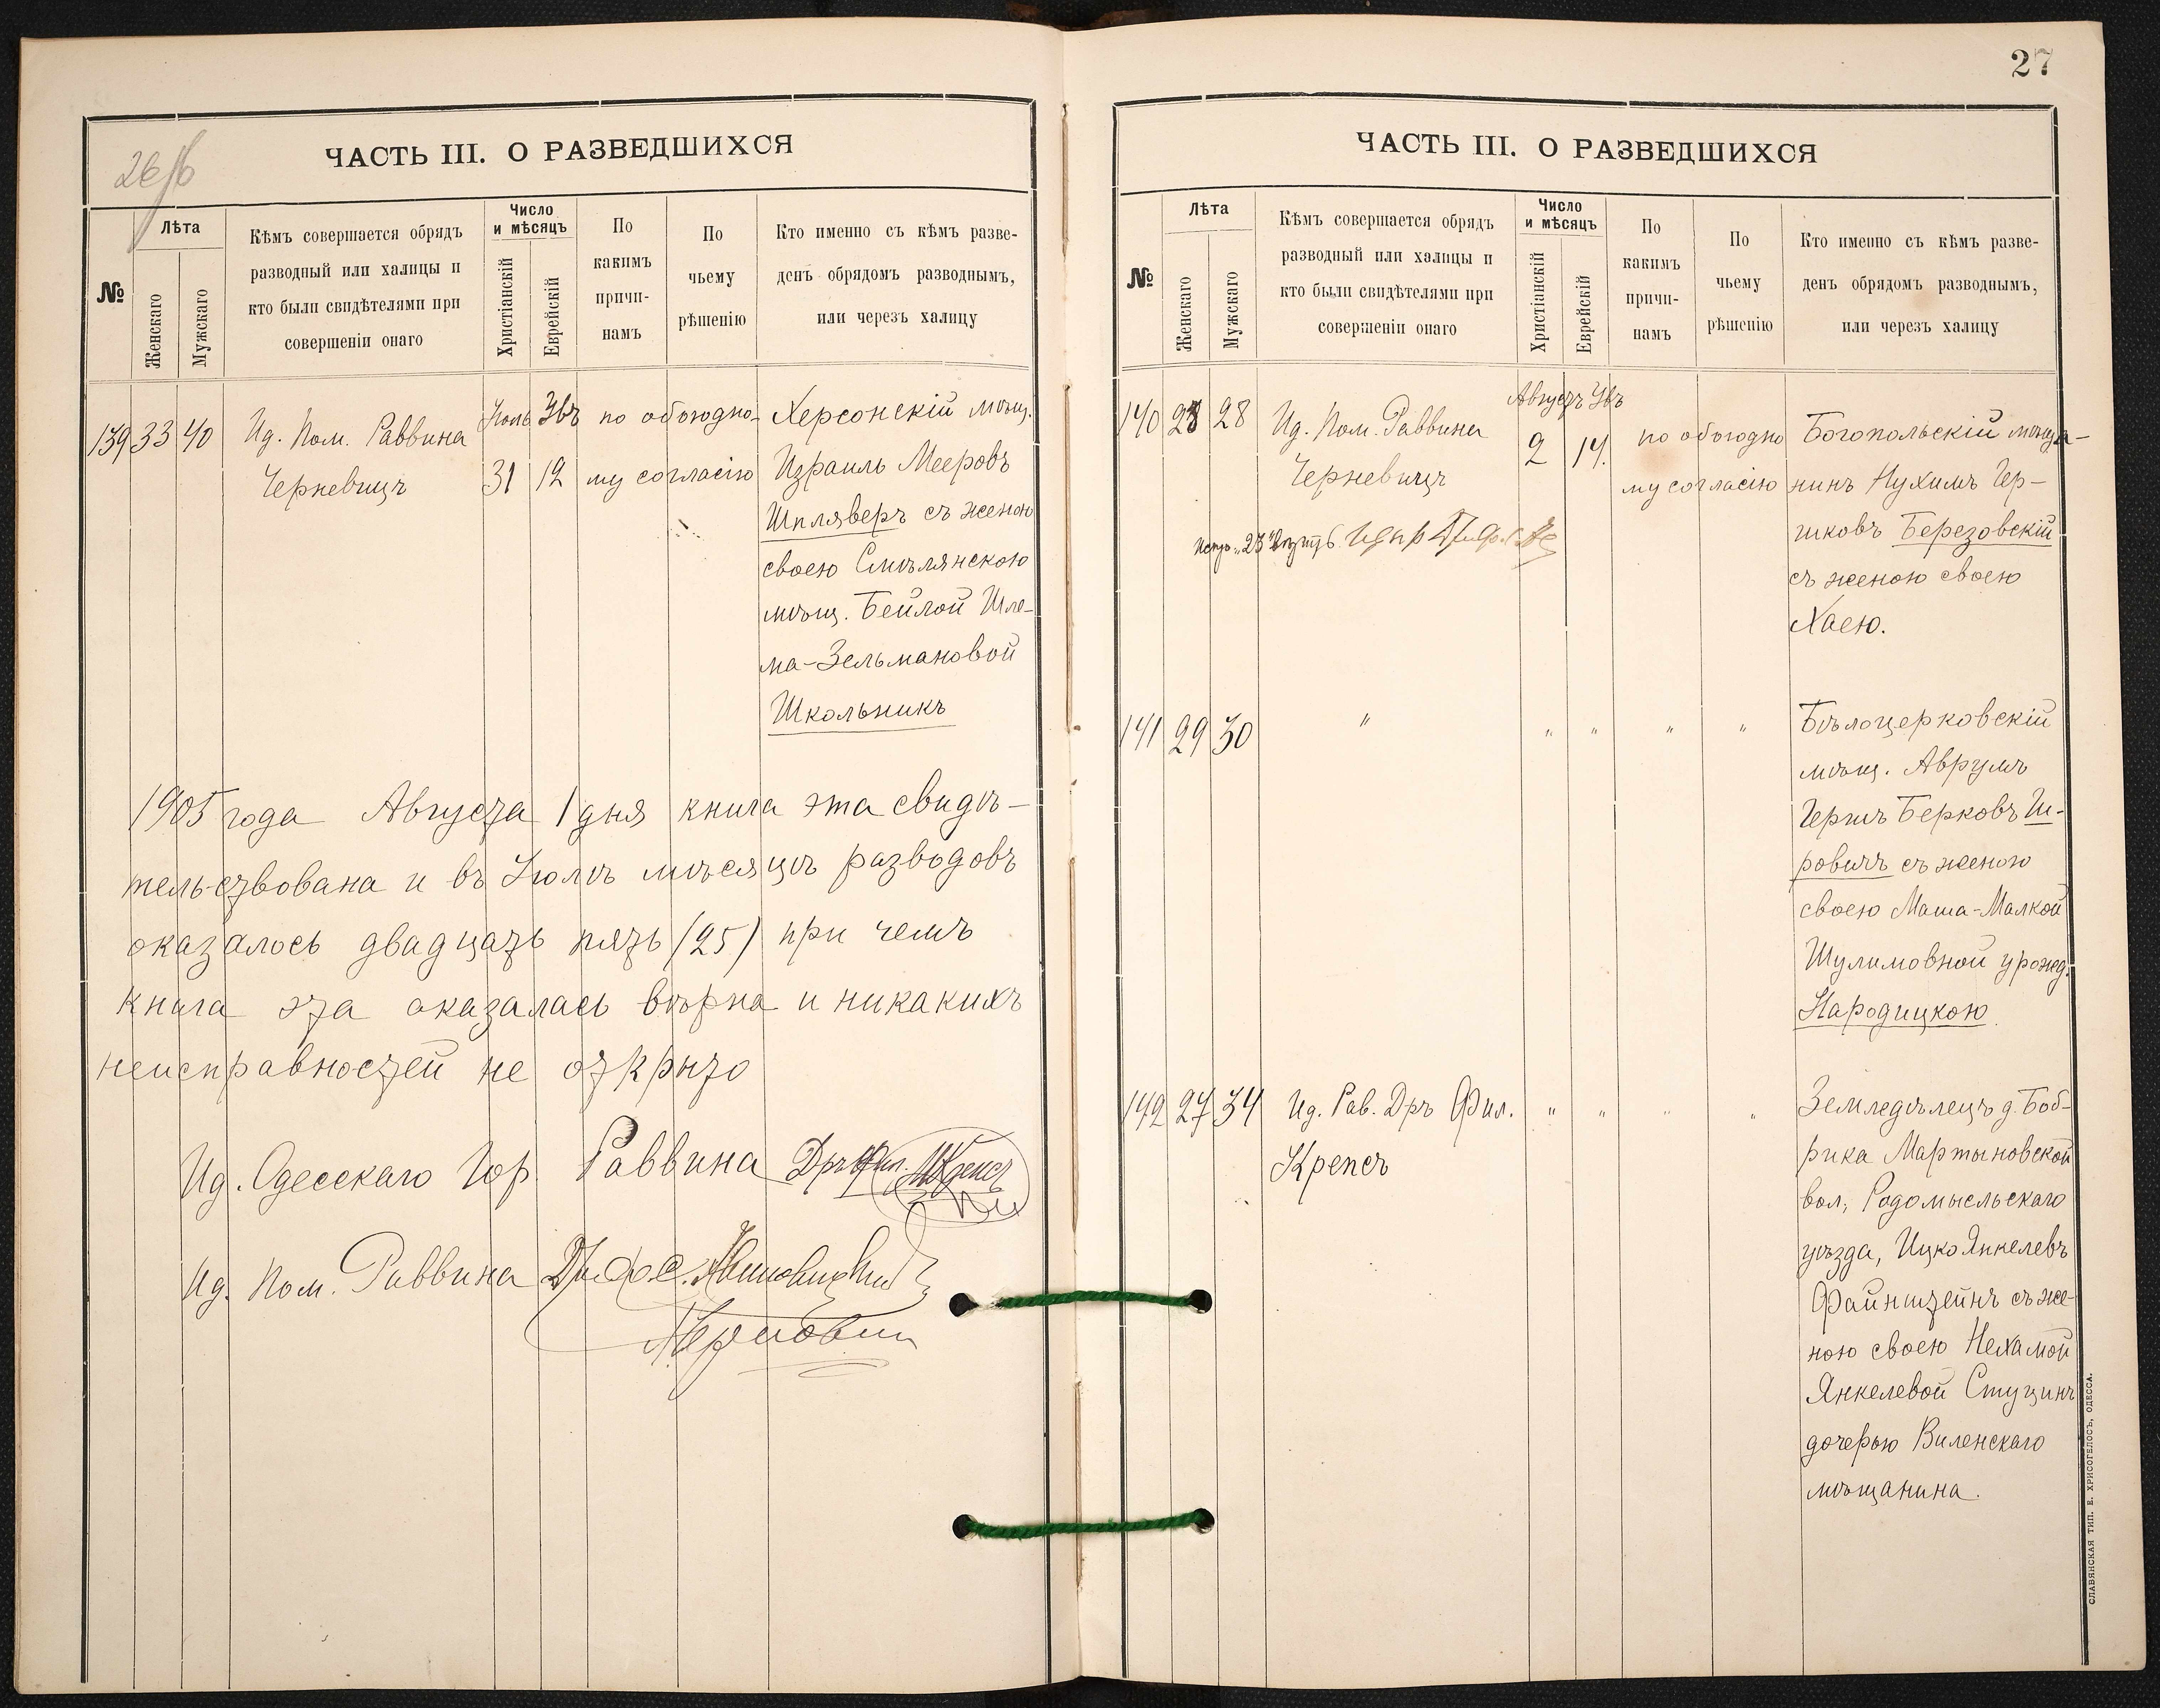 26/б
ЧАСТЬ III. О РАЗВЕДШИХСЯ
№
Лѣта
Женскаго
Мужскаго
Кѣмъ совершается обрядъ
разводный или халицы и
кто были свидѣтелями при
совершеніи онаго
Число
и мѣсяцъ
Христіанскій
Еврейскій
По
какимъ
причи-
намъ
По
чьему
рѣшенію
Кто именно съ кѣмъ разве-
денъ обрядомъ разводнымъ,
или черезъ халицу
139 33 40 Ид. Пом. Раввина
Черневицъ
Іюль
31
Увъ
12
по обоюдно-
му согласію
Херсонскій мѣщ.
Израиль Мееровъ
Шпляверъ съ женою
своею Смѣлянскою
мѣщ. Бейлой Шле-
ма-Зельмановой
Школьникъ
1905 года Августа 1 дня книга эта свидѣ-
тельствована и въ Іюлѣ мѣсяцѣ разводовъ
оказалось двадцать пять (25) при чемъ
книга эта оказалась вѣрна и никакихъ
неисправностей не открыто
Ид. Одесскаго Гор. Раввина Дръ Фил. Крепсъ
Ид. Пом. Раввина
27
ЧАСТЬ III. О РАЗВЕДШИХСЯ
№
Лѣта
Женскаго
Мужскаго
Кѣмъ совершается обрядъ
разводный или халицы и
кто были свидѣтелями при
совершеніи онаго
Число
и мѣсяцъ
Христіанскій
Еврейскій
По
какимъ
причи-
намъ
По
чьему
рѣшенію
Кто именно съ кѣмъ разве-
денъ обрядомъ разводнымъ,
или черезъ халицу
140 23 28 Ид. Пом. Раввина
Черневицъ
Августъ
2
Увъ
14.
по обоюдно
му согласію
Богопольскій мѣща-
нинъ Нухимъ Гер-
шковъ Березовскій
съ женою своею
Хаею.
141 29 30 " " " " "
Бѣлоцерковскій
мѣщ. Аврумъ
Гершъ Берковъ Ш-
ровичъ съ женою
своею Маша-Малкой
Шулимовной урожд.
Народицкою
142 27 34 Ид. Рав. Дръ Фил.
Крепсъ
" " " "
Земледѣлецъ д. Боб-
рика Мартыновской
вол., Родомысльскаго
уѣзда, Ицко Янкелевъ
Файнштейнъ съ же-
ною своею Нехамой
Янкелевой Ступинъ
дочерью Виленскаго
мѣщанина.
СЛАВЯНСКАЯ ТИП. Е. ХРИСОГЕЛОСЪ, ОДЕССА.